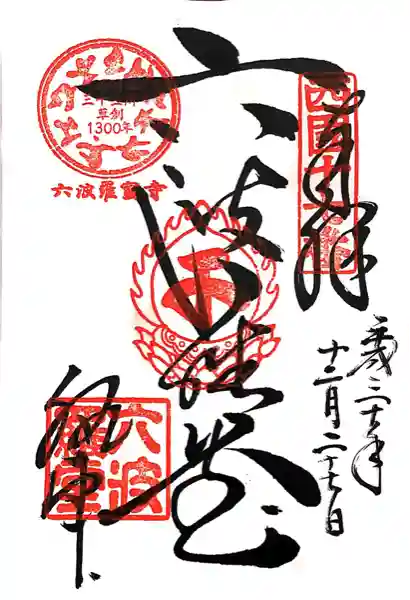 奉拝
西国十七番
平成三十年
十二月二十七日
六波羅堂
三十三所
草創
1300年
六波羅蜜寺
六波
羅堂